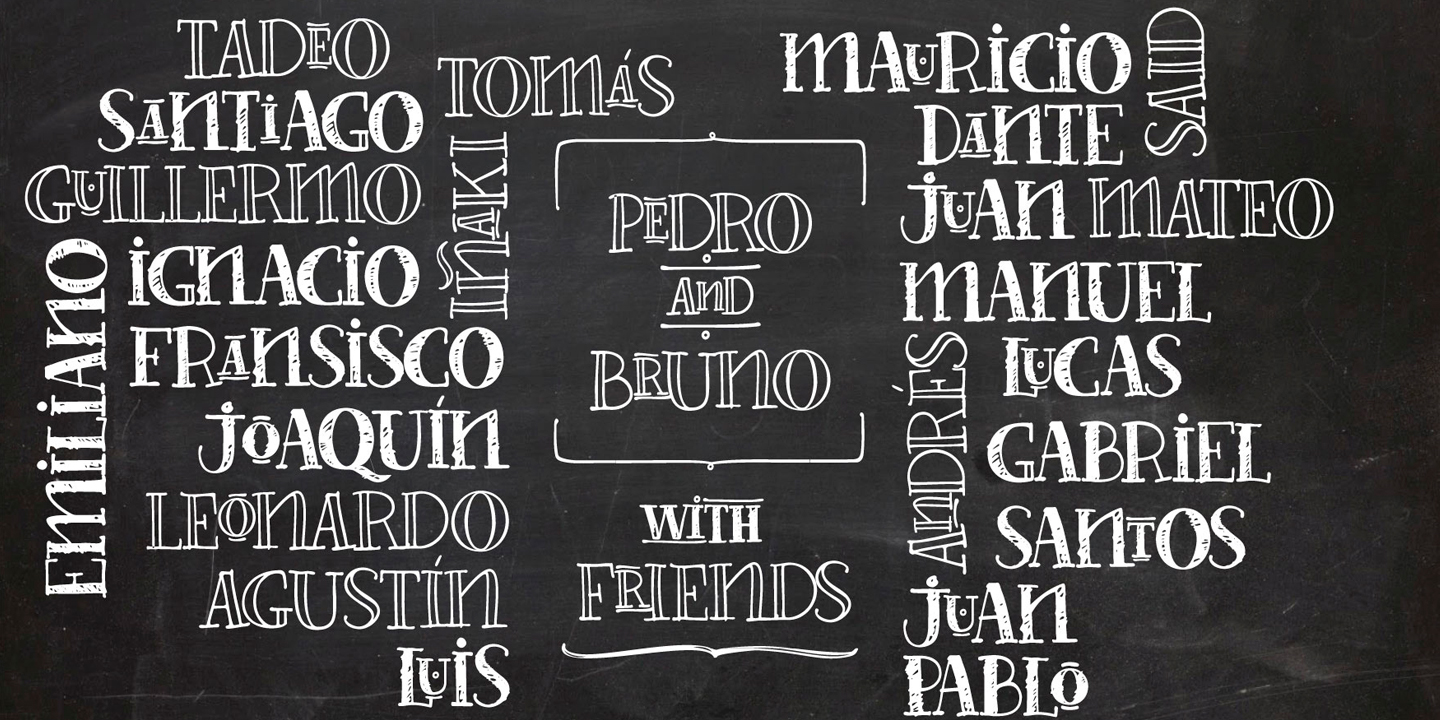 TADEO
SANTIAGO
GUILLERMO
IGNACIO
FRANSISCO
JOAQUÍN
LEONARDO
AGUSTÍN
LUIS
EMILIANO
TOMÁS
IÑAKI
PEDRO
AND
BRUNO
WITH
FRIENDS
MAURICIO
SAID
DANTE
JUAN MATEO
MANUEL
LUCAS
ANDRÉS
GABRIEL
SANTOS
JUAN
PABLO